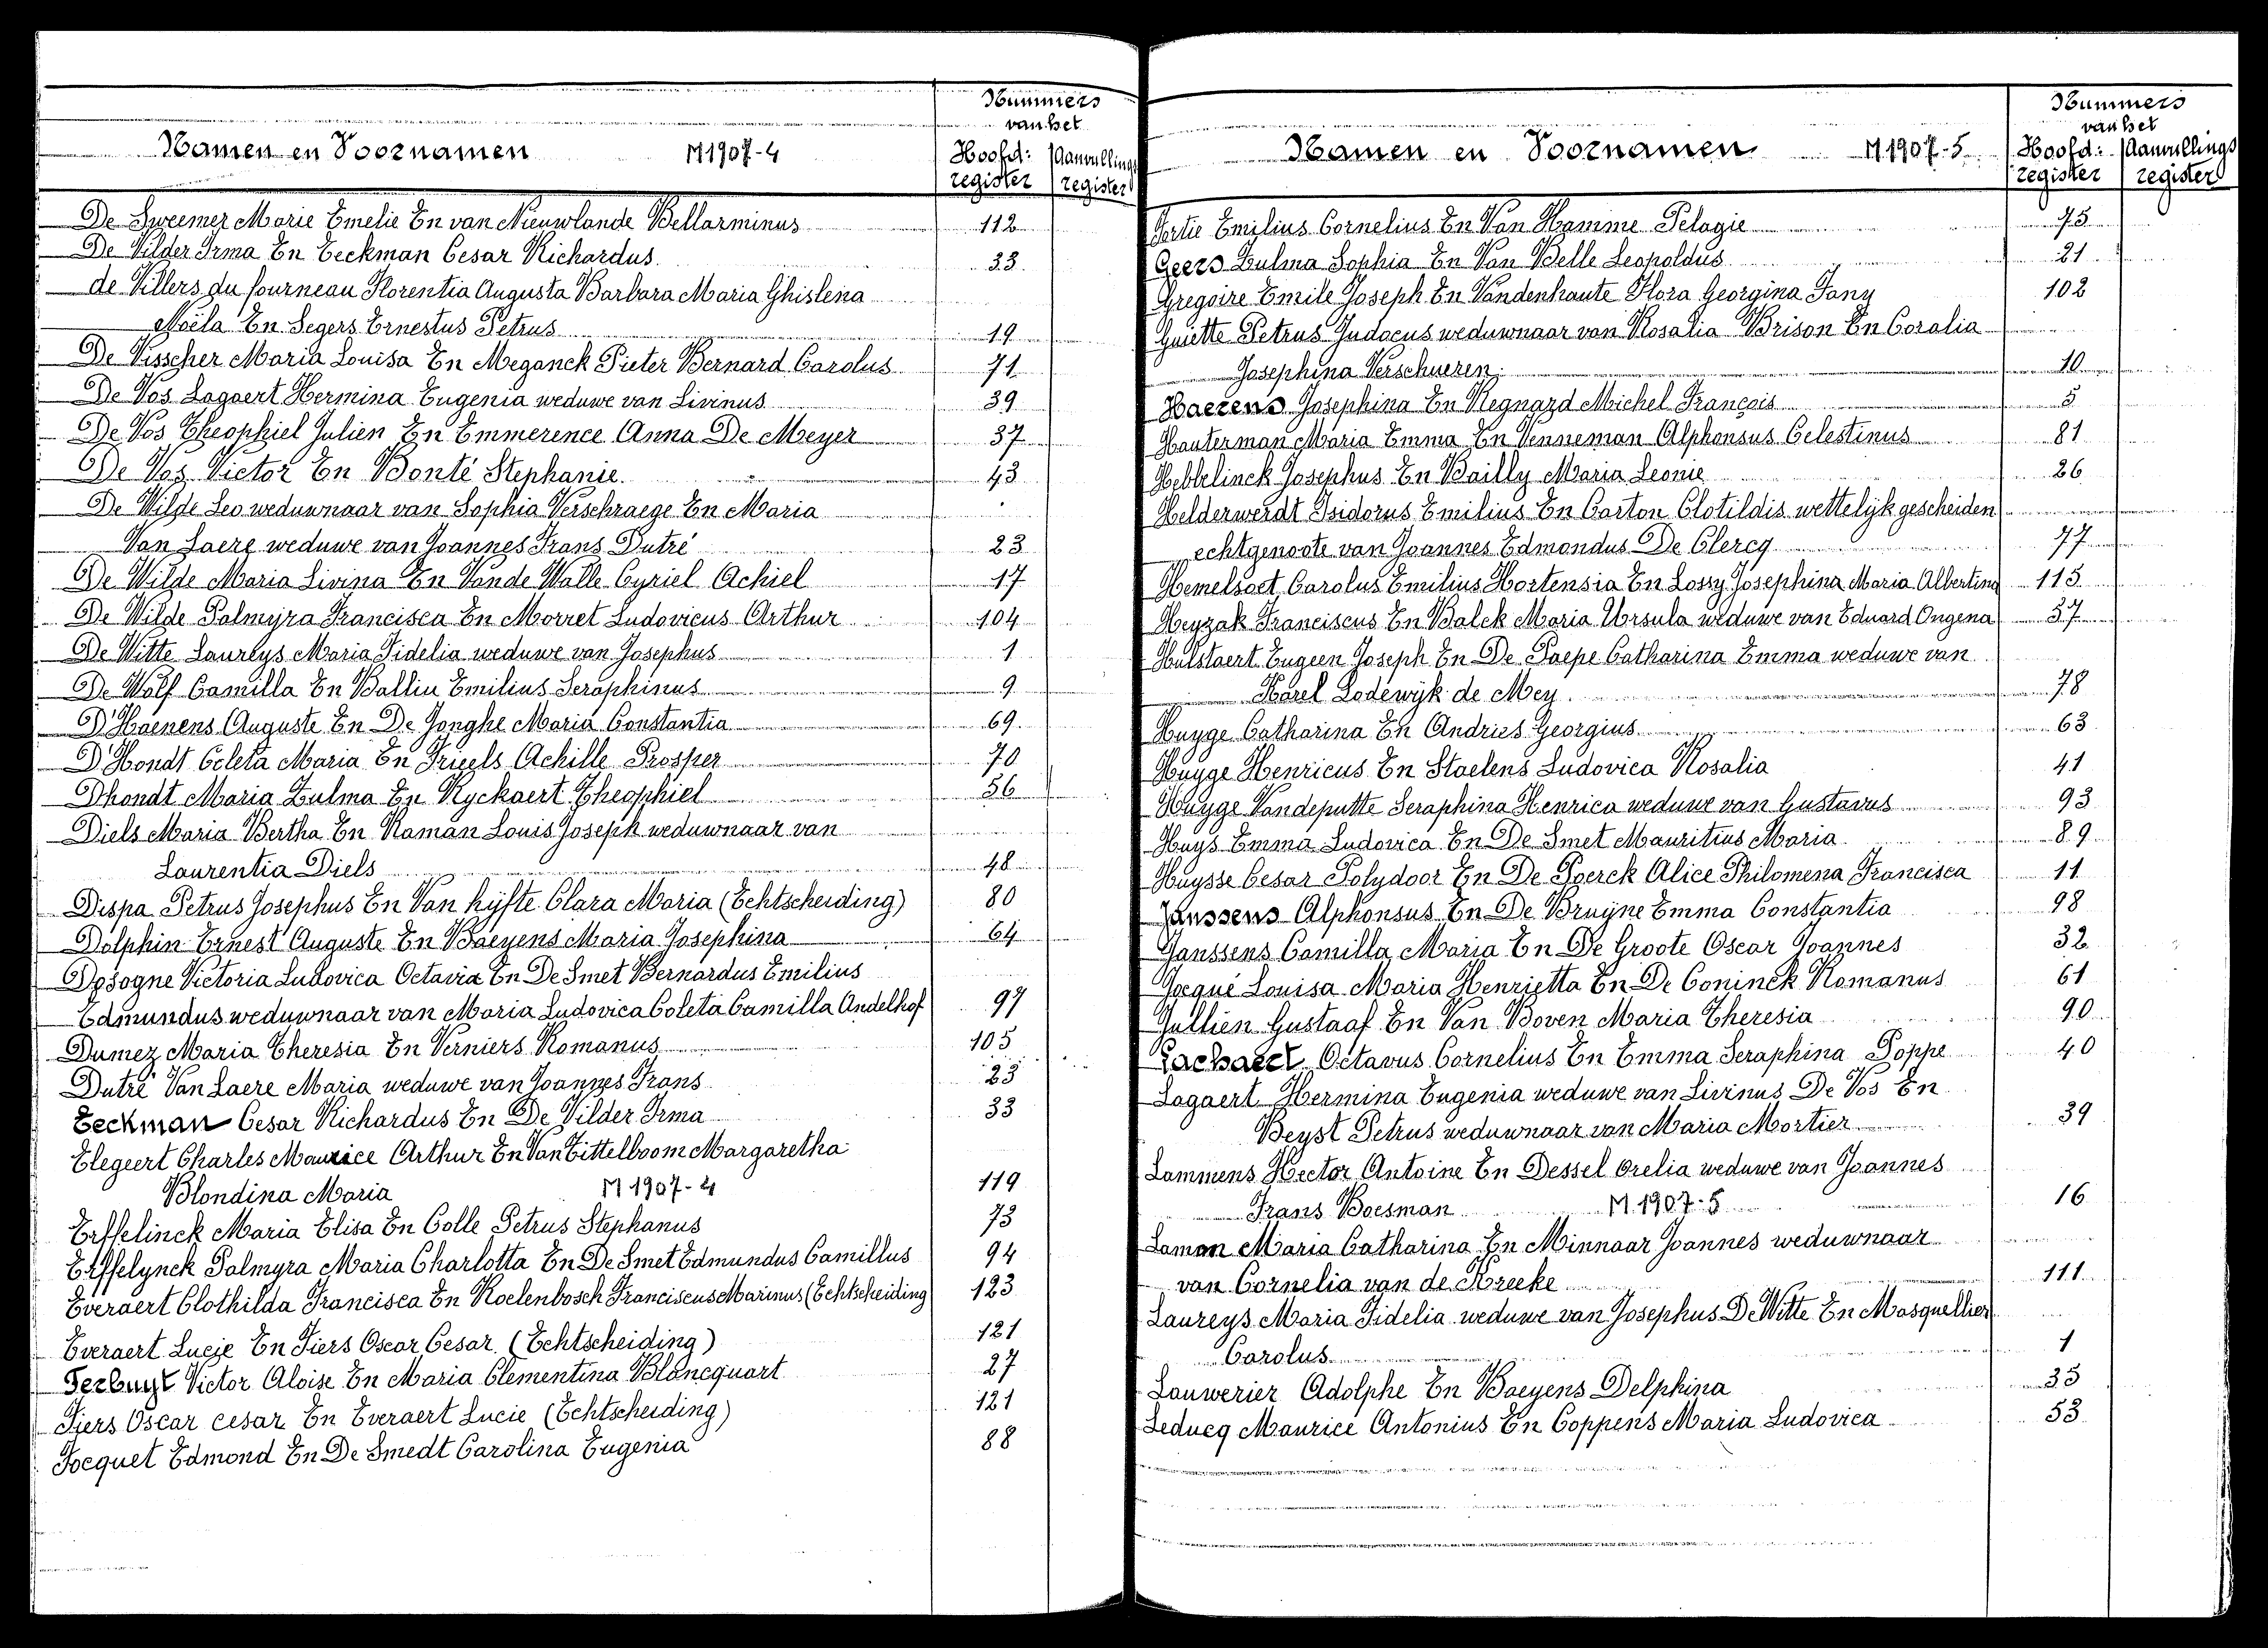 Nummers
van het
Namen en Voornamen M1907-4 Hoofd: Aanvullings
register register
De Sweemer Marie Emelie En van Nieuwlande Bellarminus 112
De Vilder Irma En Eeckman Cesar Richardus 33
de Villers du fourneau Florentia Augusta Barbara Maria Ghislena
Noëla En Segers Ernestus Petrus 19
De Visscher Maria Louisa En Meganck Pieter Bernard Carolus 71
De Vos Lagaert Hermina Eugenia weduwe van Livinus 39
De Vos Theophiel Julien En Emmerence Anna De Meyer 37
De Vos Victor En Bonté Stephanie. 43
De Wilde Leo weduwnaar van Sophia Verschraege En Maria
Van Laere weduwe van Joannes Frans Dutré 23
De Wilde Maria Livina En Vande Walle Cyriel Achiel 17
De Wilde Palmyra Francisca En Morret Ludovicus Arthur 104
De Witte Laureys Maria Fidelia weduwe van Josephus 1
De Wolf Camilla En Ballin Emilius Seraphinus 9
D'Haenens Auguste En De Jonghe Maria Constantia 69
D'Hondt Celeta Maria En Friells Achille Prosper 70
Dhondt Maria Zulma En Ryckaert Theophiel 56
Diels Maria Bertha En Roman Louis Joseph weduwnaar van
Laurentia Diels 48
Dispa Petrus Josephus En Van hijfte Clara Maria (Echtscheiding) 80
Dolphin Ernest Auguste En Baeyens Maria Josephina 64
Dosogne Victoria Ludovica Octavia En De Smet Bernardus Emilius
Edmundus weduwnaar van Maria Ludovica Coleta Camilla Andelhof 97
Dumez Maria Theresia En Verniers Romanus 105
Dutré Van Laere Maria weduwe van Joannes Frans 23
Eeckman Cesar Richardus En De Vilder Irma 33
Elegeert Charles Maurice Arthur En Van Tittelboom Margaretha
Blondina Maria M1907-4 119
Erffelinck Maria Elisa En Colle Petrus Stephanus 73
Erffelynck Palmyra Maria Charlotta En De Smet Edmundus Camillus 94
Everaert Clothilda Francisca En Roelenbosch Franciscus Marinus (Echtscheiding 123
Everaert Lucie En Fiers Oscar Cesar (Echtscheiding) 121
Ferbuyt Victor Aloise En Maria Clementina Blancquart 27
Fiers Oscar Cesar En Everaert Lucie (Echtscheiding) 121
Focquet Edmond En De Smedt Carolina Eugenia 88
Nummers
van het
Namen en Voornamen M.1907-5 Hoofd: Aanvullings
register register
Emilius Cornelius En Van Hamme Pelagie 75
Geers Zulma Sophia En Van Belle Leopoldus 21
Gregoire Emile Joseph En Vandenhaute Flora Georgina Fany 102
Guiette Petrus Judocus weduwnaar van Rosalia Brison En Coralia
Josephina Verschueren. 10
Haerens Josephina En Regnard Michel Français 5
Hauterman Maria Emma En Venneman Alphonsus Celestinus 81
Hebbelinck Josephus En Bailly Maria Leonie 26
Helderwerdt Isidorus Emilius En Carton Clotildis wettelijk gescheiden
echtgenoote van Joannes Edmondus De Clercq 77
Hemelsoet Carolus Emilius Hortensia En Lossy Josephina Maria Albertina 115
Heyzak Franciscus En Balck Maria Ursula weduwe van Eduard Ongena 57
Hulstaert Eugeen Joseph En De Paepe Catharina Emma weduwe van
Karel Lodewijk de Mey. 78
Huyge Catharina En Andries Georgius 63
Huyge Henricus En Staelens Ludovica Rosalia 41
Huyge Vandeputte Seraphina Henrica weduwe van Gustavus 93
Huys Emma Ludovica En De Smet Mauritius Maria 89
Huysse Cesar Polydoor En De Poerck Alice Philomena Francisca 11
Janssens Alphonsus En De Bruyne Emma Constantia 98
Janssens Camilla Maria En De Groote Oscar Joannes 32
Jocqué Louisa Maria Henrietta En De Coninck Romanus 61
Jullien Gustaaf En Van Boven Maria Theresia 90
Lachaert Octavus Cornelius En Emma Seraphina Poppe 40
Lagaert Hermina Eugenia weduwe van Livinus De Vos En
Beyst Petrus weduwnaar van Maria Mortier 39
Lammens Hector Antoine En Dessel Orelia weduwe van Joannes
Frans Boesman M.1907-5 16
Lamon Maria Catharina En Minnaar Joannes weduwnaar
van Cornelia van de Kreeke 111
Laureys Maria Fidelia weduwe van Josephus De Witte En Masquellier
Carolus 1
Lauwerier Adolphe En Baeyens Delphina 35
Leducq Maurice Antonius En Coppens Maria Ludovica 53